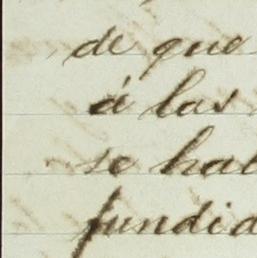 de que
á las
se hal
fundid